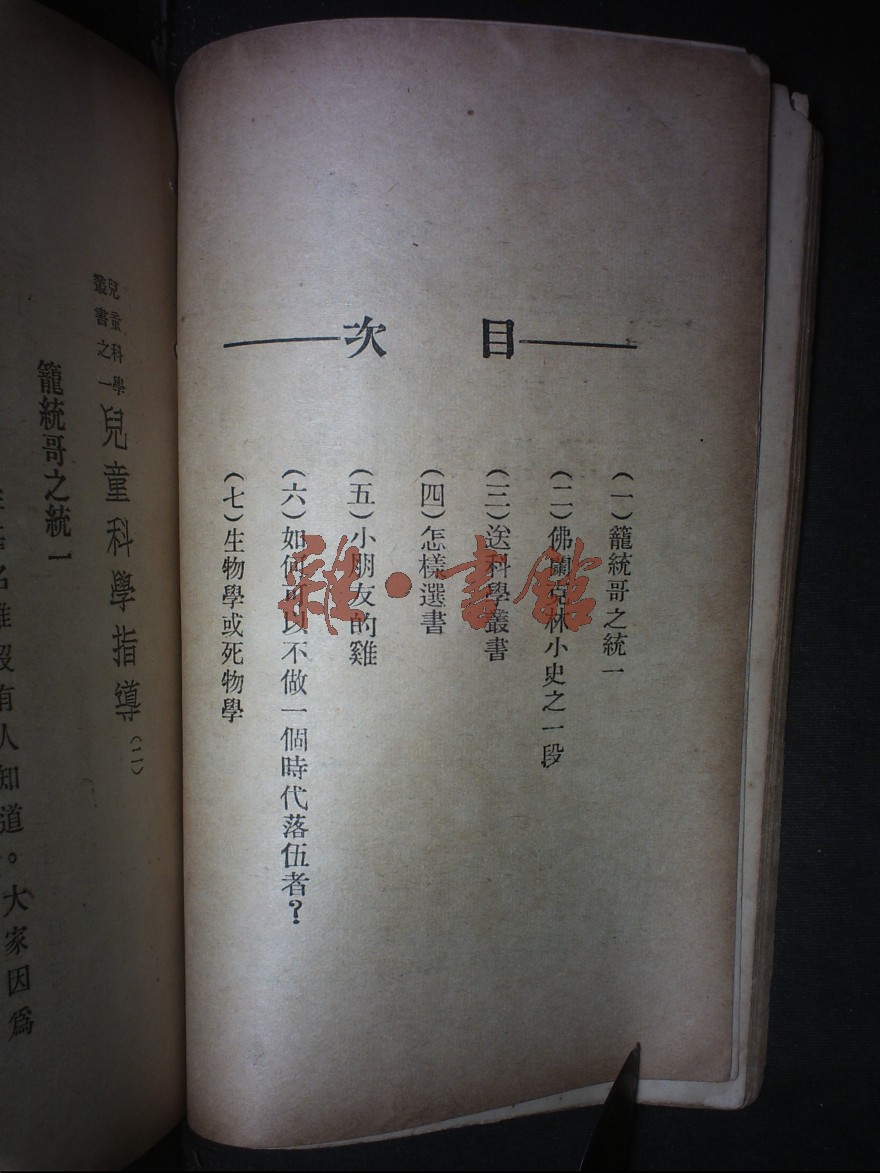 目次
(一)籠統哥之統一
(二)佛蘭克林小史之一段
(三)送科學叢書
(四)怎樣選書
(五)小朋友的雞
(六)如何可以不做一個時代落伍者?
(七)生物學或死物學
兒童科學叢書之一
兒童科學指導(二)
籠統哥之統一
沒有人知道。大家因爲
雜·書館